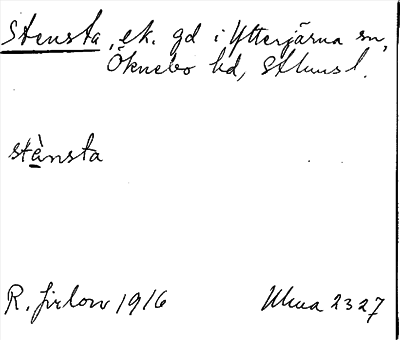 Stensta, ek. gd i Ytterjärna sn,
Öknebo hd, Sthms l.
stènsta
R. Jirlow 1916 Uma 2327